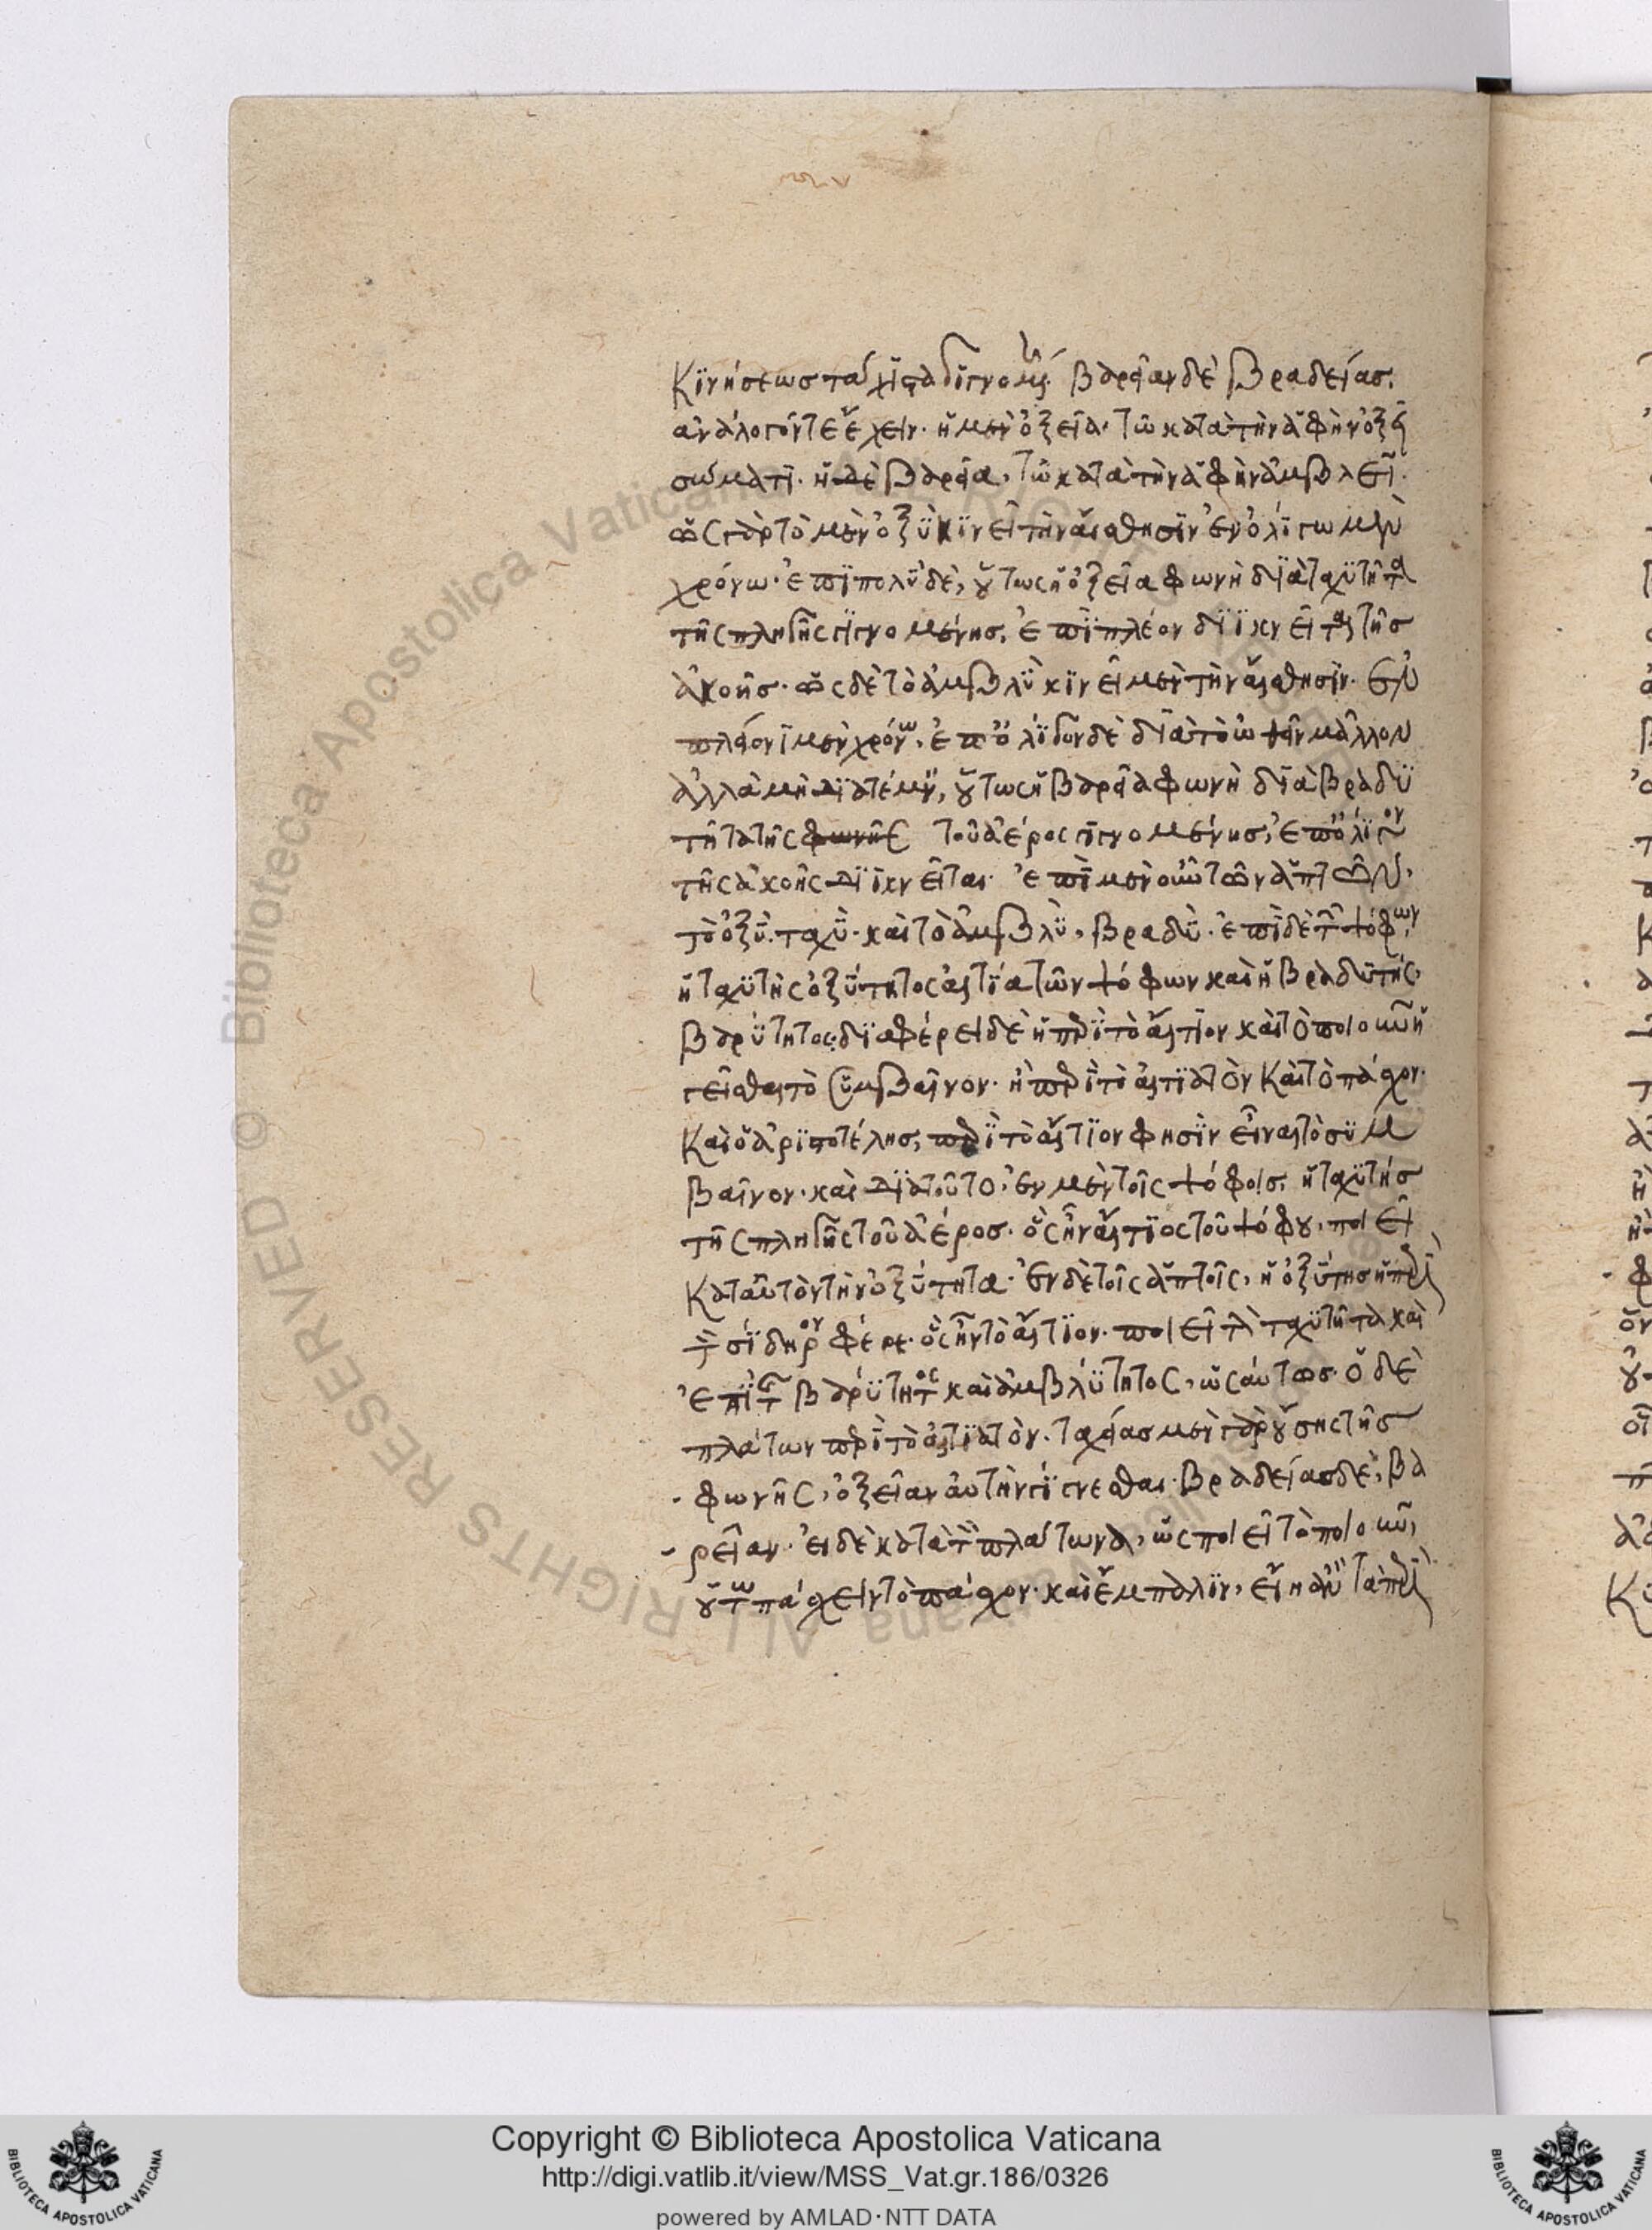 κινήσεως ταχίστα γινομένης. βαρεῖαν δὲ βραδείας.
ἀνάλογόν τε ἔχειν. ἡ μὲν ὀξεῖα, τῶ κατὰ τὴν ἁφὴν ὀξεῖ
σώματι. ἡ δὲ βαρεῖα, τῶ κατὰ τὴν ἁφὴν ἀμβλεῖ.
ὡς γὰρ τὸ μὲν ὀξὺ κινεῖ τὴν αἴσθησιν ἐν ὀλίγω μὲν
χρόνω. ἐπιπολὺ δὲ, οὕτως ἡ ὀξεῖα φωνὴ διὰ ταχυτῆτα
τῆς πληγῆς γινομένης, ἐπιπλέον διϊκνεῖται τῆς
ἀκοῆς. ὡς δὲ τὸ ἀμβλὺ κινεῖ μὲν τὴν αἴσθησιν. ἐν
πλείονι μὲν χρόνω, ἐπ' ὀλίγον δὲ διὰ τὸ ὠθεῖν μᾶλλον
ἀλλὰ μὴ διατέμνειν, οὕτως ἡ βαρεῖα φωνὴ διὰ βραδυ
τῆτα τῆς φωνῆς τοῦ ἀέρος γινομένης, ἐπ' ὀλίγον
τῆς ἀκοῆς διϊκνεῖται. ἐπὶ μὲν οὖν τῶν ἁπτῶν,
τὸ ὀξὺ. ταχὺ. καὶ τὸ ἀμβλὺ, βραδὺ. ἐπὶ δὲ τῶν ψόφων,
ἡ ταχυτὴς ὀξύτητος αἰτία τῶν ψόφων καὶ ἡ βραδυτής,
βαρύτητος. διαφέρει δὲ ἢ περὶ τὸ αἴτιον καὶ τὸ ποιοῦν ἡ
γεῖσθαι τὸ συμβαῖνον. ἢ περὶ τὸ αἰτιατὸν καὶ τὸ πάσχον.
καὶ ὁ ἀριστοτέλης, περὶ τὸ αἴτιον φησὶν εἶναι τὸ συμ
βαῖνον. καὶ διατοῦτο, ἐν μὲν τοῖς ψόφοις, ἡ ταχυτὴς
τῆς πληγῆς τοῦ ἀέρος. ὃς ἦν αἴτιος τοῦ ψόφου, ποιεῖ
κατ' αὐτὸν τὴν ὀξύτητα. ἐν δὲ τοῖς ἁπτοῖς, ἡ ὀξύτης ἡ περὶ
τὸν σίδηρον φέρε. ὃς ἦν τὸ αἴτιον. ποιεῖ τὴν ταχυτῆτα καὶ
ἐπὶ τῆς βαρύτητος καὶ ἀμβλύτητος, ὡσαύτως. ὁ δὲ
πλάτων περὶ τὸ αἰτιατὸν. ταχείας μὲν γὰρ οὔσης τῆς
φωνῆς, ὀξεῖαν αὐτὴν γίγνεσθαι. βραδείας δὲ, βα
ρεῖαν. εἰ δὲ κατὰ τὸν πλάτωνα, ὡς ποιεῖ τὸ ποιοῦν,
οὕτω πάσχειν τὸ πάσχον. καὶ ἔμπαλιν, εἴη ἂν ταπερὶ